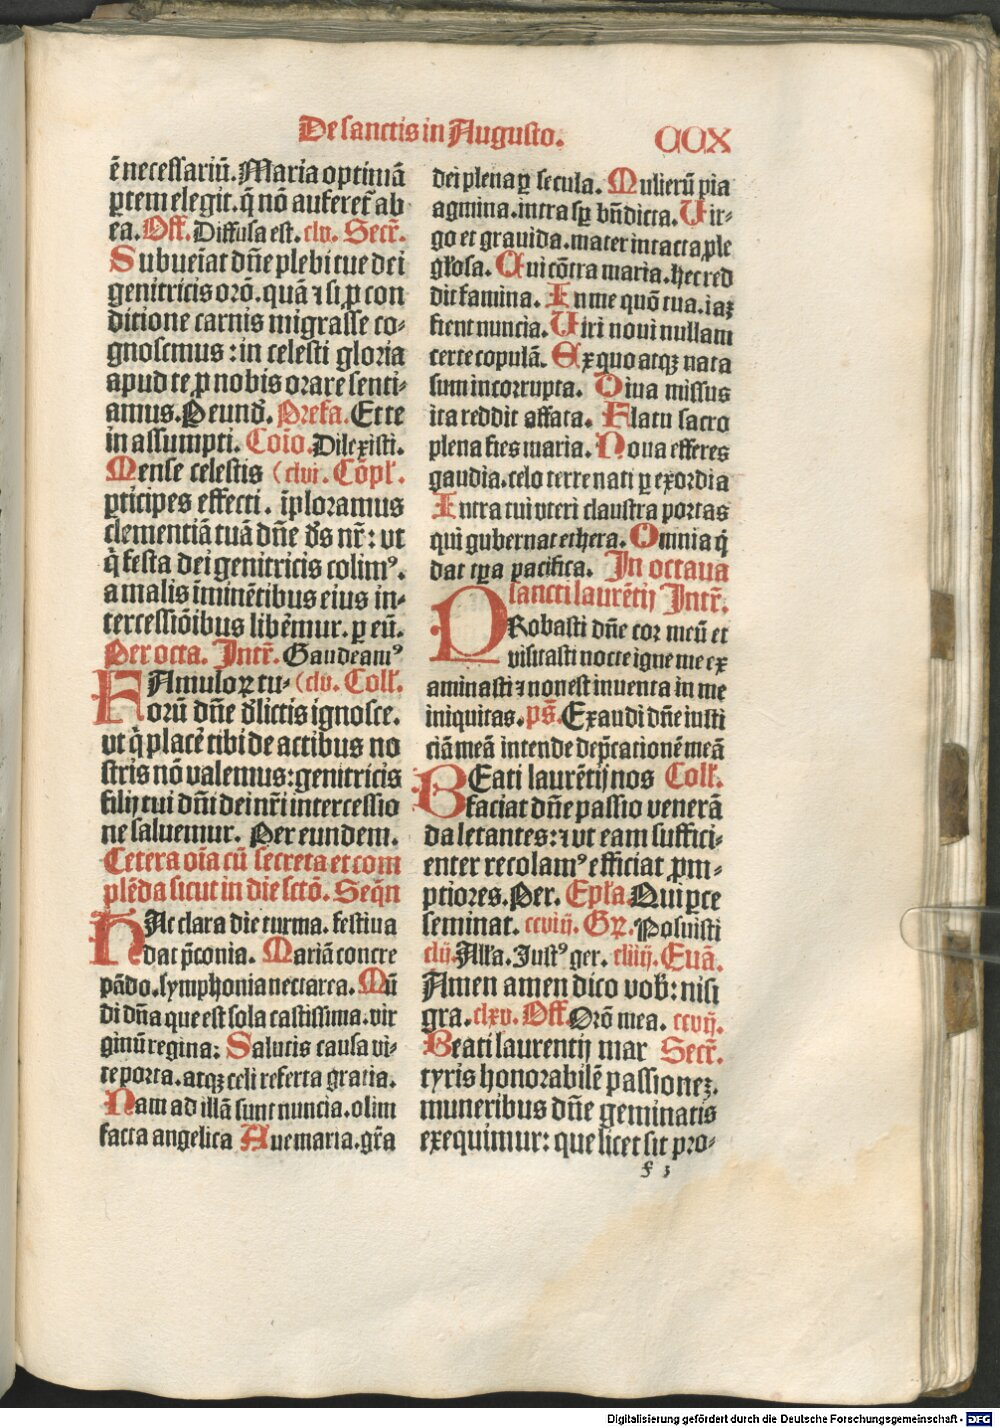 De sanctis in Augusto. CCX
ē necessariū. Maria optimā
ꝑtem elegit. q̄ nō auferet᷑ ab
ea. Off. Diffusa est. clv. Secr̄.
Subueīat dn̄e plebi tue dei
genitricis orō. quā ⁊ si ꝓ con
ditione carnis migrasse co-
gnoscimus: in celesti gloria
apud te ꝓ nobis orare senti-
amus. Per eund̄. Prefa. Et te
in assumpti. Coīo. Dilexisti.
Mense celestis (clvi. Cōpl̄.
ꝑticipes effecti. īploramus
clementiā tuā dn̄e d̄s nr̄: vt
q̄ festa dei genitricis colimꝰ.
a malis īminētibus eius in-
tercessiōibus liberēmur. ꝑ eū.
Per octa. Intr̄. Gaudeamꝰ
FAmuloꝝ tu- (clv. Coll̄.
orū dn̄e d̄lictis ignosce.
vt q̄ placē tibi de actibus no
stris nō valemus: genitricis
filij tui dn̄i dei nr̄i intercessio
ne saluemur. Per eundem.
Cetera oīa cū secreta et com
plēda sicut in die sctō. Seqn̄
HAc clara die turma. festiua
dat p̄conia. Mariā concre
pādo. symphonia nectarea. Mū
di dn̄a que est sola castissima. vir
ginū regina: Salutis causa vi-
te porta. atqꝫ celi referta gratia.
Nam ad illā sunt nuncia. olim
facta angelica Aue maria. gr̄a
dei plena ꝑ secula. Mulierū pia
agmina. intra sꝑ bn̄dicta. Vir-
go et grauida. mater intacta ꝓle
gl̄osa. Cui cōtra maria. hec red
dit famina. In me quō tua. iaꝫ
fient nuncia. Viri noui nullam
certe copulā. Ex quo atqꝫ nata
sum incorrupta. Diua missus
ita reddit affata. Flatu sacro
plena fies maria. Noua efferes
gaudia. celo terre nati ꝑ exordia
Intra tui vteri claustra portas
qui gubernat ethera. Omnia q̄
dat tꝑa pacifica. In octaua
sancti laurētij Intr̄.
PRobasti dn̄e cor meū et
visitasti nocte igne me ex
aminasti ⁊ non est inuenta in me
iniquitas. ps̄. Exaudi dn̄e iusti
ciā meā intende dep̄cationē meā
BEati laurētij nos Coll̄.
faciat dn̄e passio venerā
da letantes: ⁊ vt eam suffici-
enter recolamꝰ efficiat ꝓm-
ptiores. Per. Epl̄a. Qui ꝑce
seminat. ccviij. Gꝶ. Posuisti
clij. All̄a. Justꝰ ger. cliiij. Euā.
Amen amen dico vob̄: nisi
gra. clxv. Off. Orō mea. ccvij.
Beati laurentij mar Secr̄.
tyris honorabilē passioneꝫ.
muneribus dn̄e geminatis
exequimur: que licet sit pro-
Digitalisierung gefördert durch die Deutsche Forschungsgemeinschaft - DFG